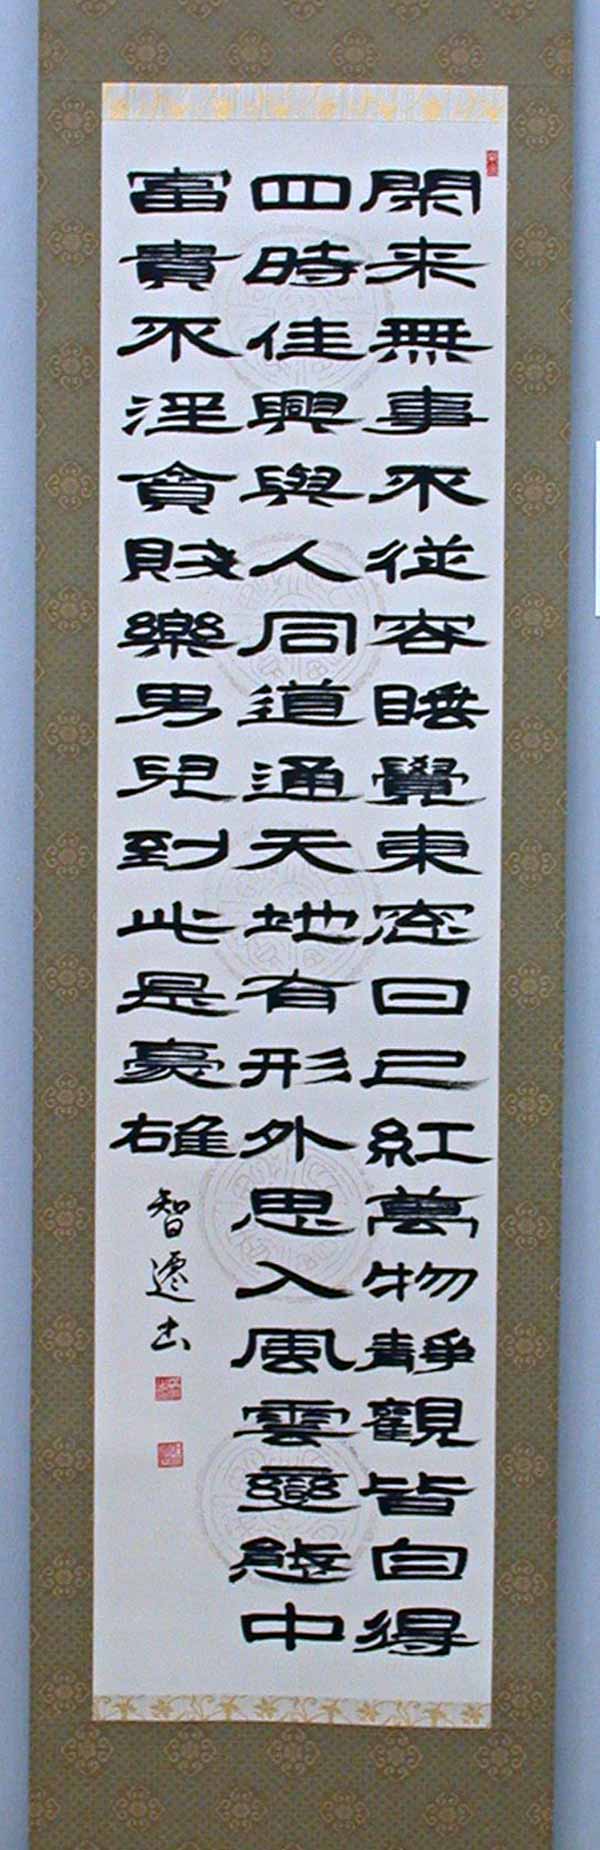 閑来無事不從容睡覺東窓日已紅萬物靜觀皆自得
四時佳興與人同道通天地有形外思入風雲變態中
富貴不淫貪賤樂男兒到此是豪雄
智遷书